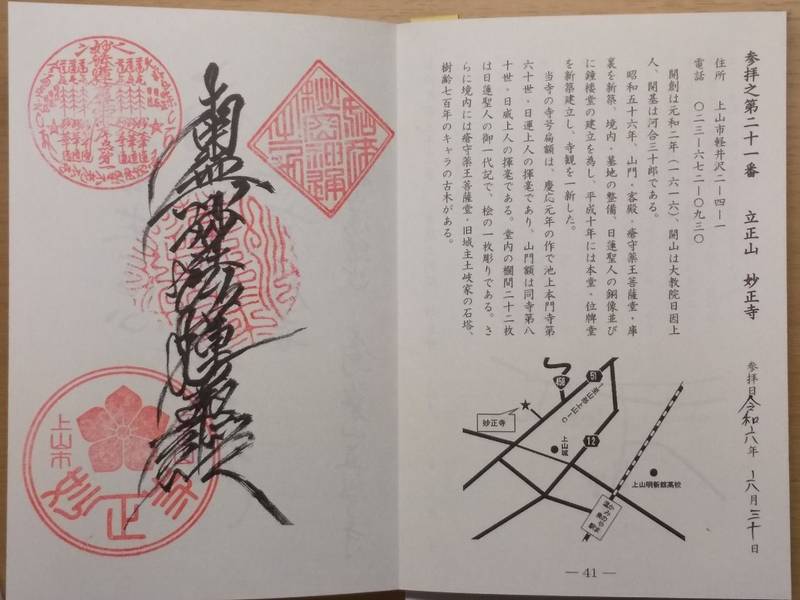 参拝之第二十一番　立正山　妙正寺
住所　上山市軽井沢二ー四ー一
電話　〇二三ー六七二ー〇九三〇
開創は元和二年（一六一六）、開山は大教院日因上
人、開基は河合三十郎である。
昭和五十六年、山門・客殿・瘡守薬王菩薩堂・庫
裏を新築、境内・墓地の整備、日蓮聖人の銅像並び
に鐘楼堂の建立を為し、平成十年には本堂・位牌堂
を新築建立し、寺観を一新した。
当寺の寺号扁額は、慶応元年の作で池上本門寺第
六十世・日運上人の揮毫であり、山門額は同寺第八
十世・日威上人の揮毫である。堂内の欄間二十二枚
は日蓮聖人の御一代記で、桧の一枚彫りである。さ
らに境内には瘡守薬王菩薩堂・旧城主土岐家の石塔、
樹齢七百年のキャラの古木がある。
参拝日 令和六年 八月三十日
458
51
12
妙正寺
上山城
上山明新館高校
かみのやま
温泉駅
— 41 —
南無妙法蓮華経
上山市
妙正寺